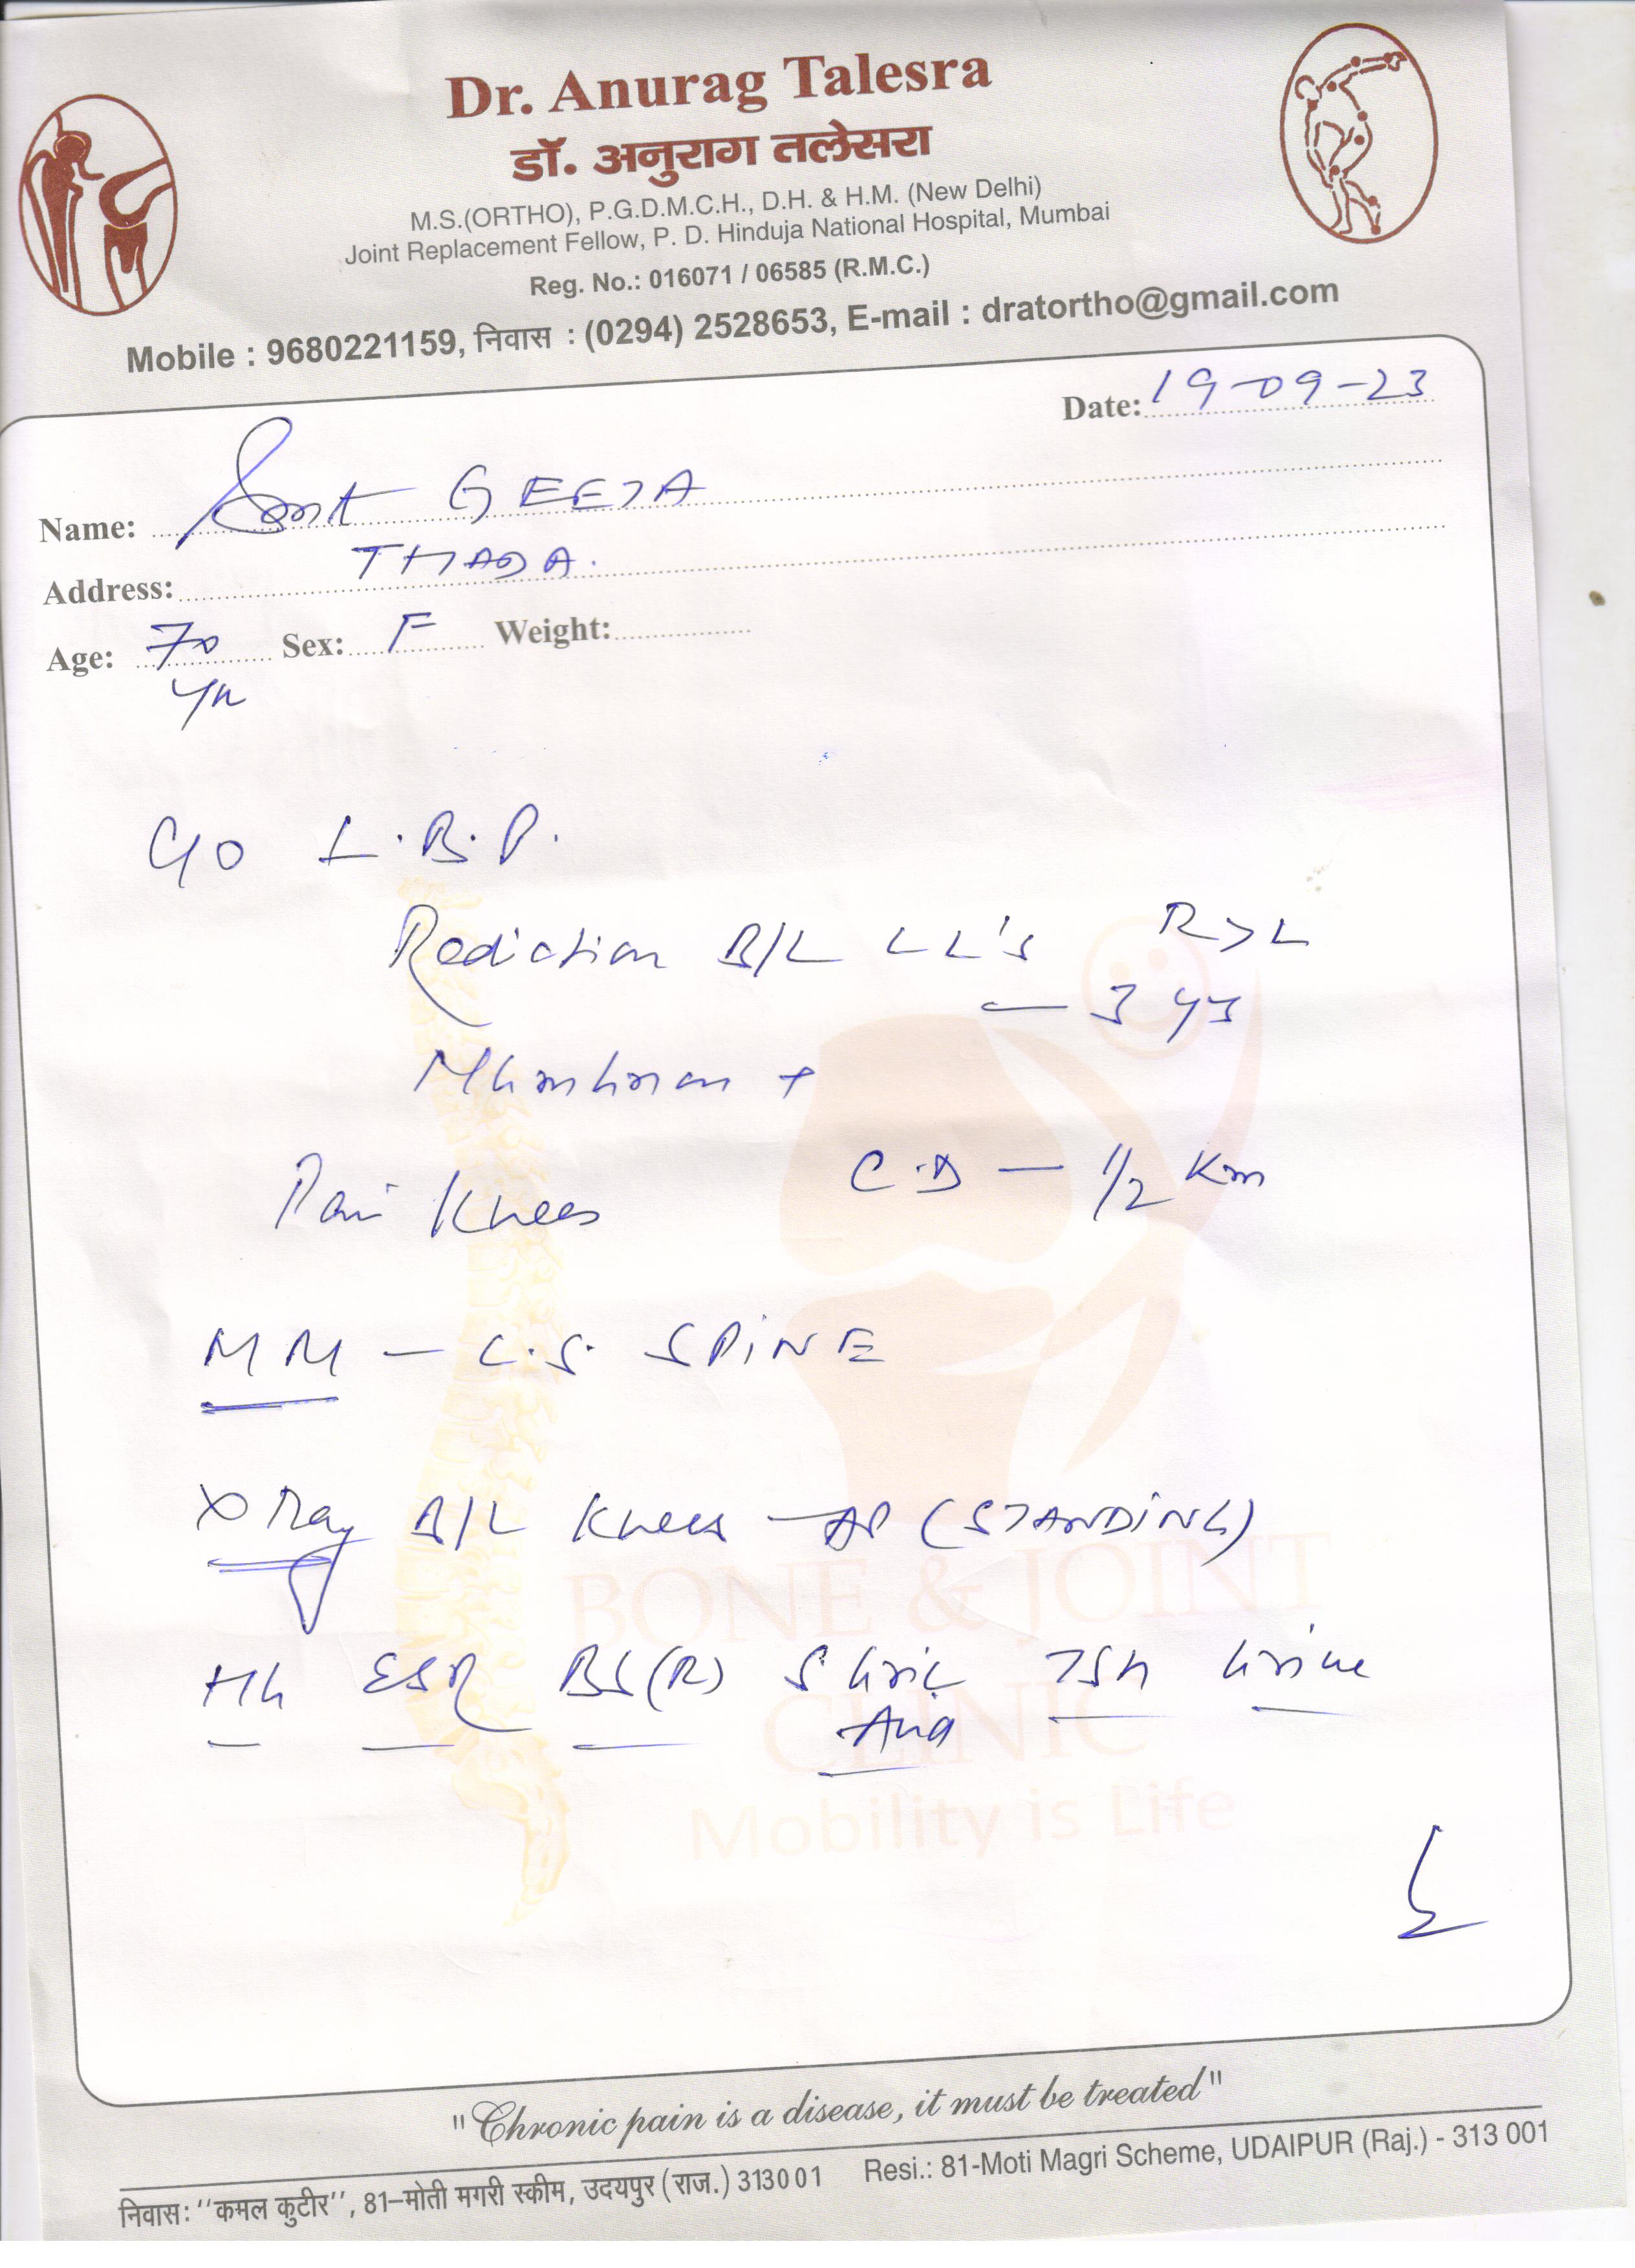 Dr. Anurag Talesra
डॉ. अनुराग तलेसरा
M.S.(ORTHO), P.G.D.M.C.H., D.H. & H.M. (New Delhi)
Joint Replacement Fellow, P. D. Hinduja National Hospital, Mumbai
Reg. No.: 016071 / 06585 (R.M.C.)
Mobile : 9680221159, निवास : (0294) 2528653, E-mail : dratortho@gmail.com
Date: 19-09-23
Name: Smt GEETA
THADA.
Address:
Age: 70 Sex: F Weight:
yr
C/O L.B.P.
Radiation B/L LL's R>L
— 3 yrs
+
C.D — 1/2 Km
Pain Knees
— L.S. SPINE
X Ray B/L Knees — AP (STANDING)
Hb ESR BS(R) S Uric TSH Urine
Acid
BONE & JOINT
CLINIC
Mobility is Life
"Chronic pain is a disease, it must be treated"
निवास: ''कमल कुटीर'', 81–मोती मगरी स्कीम, उदयपुर (राज.) 313001 Resi.: 81-Moti Magri Scheme, UDAIPUR (Raj.) - 313 001